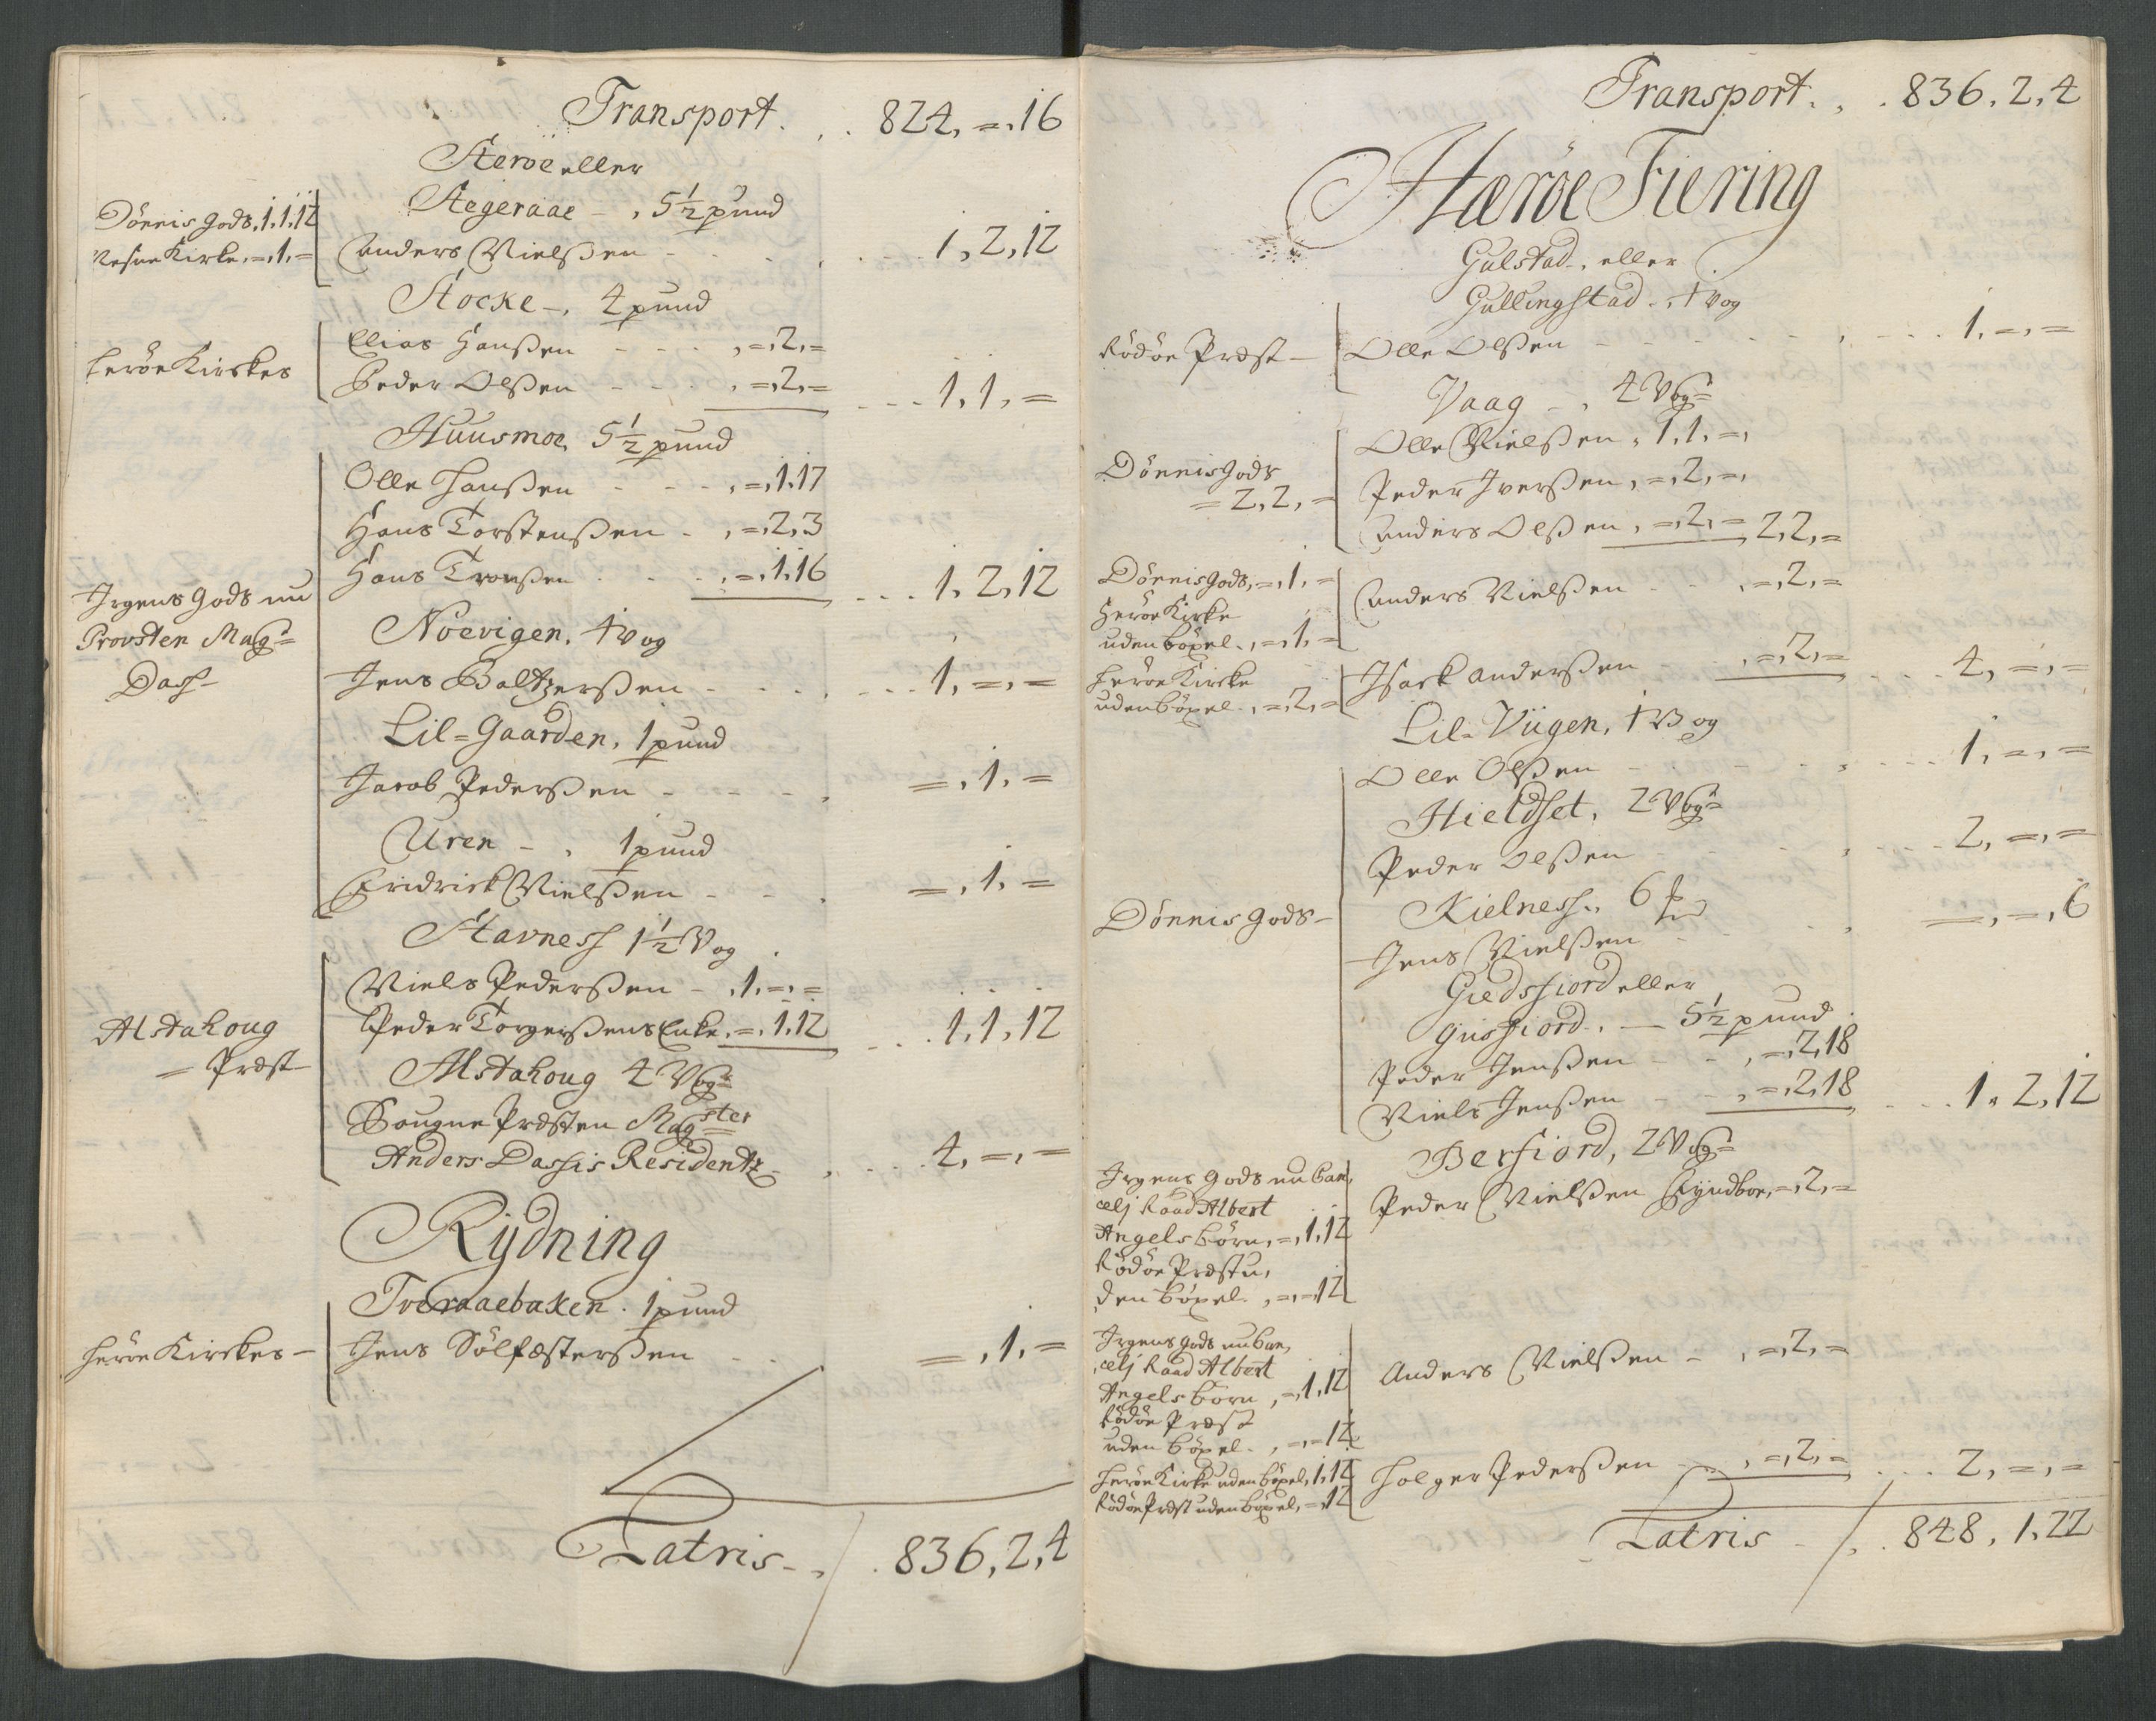 Transport. . . 824, =, 16
Steroe eller
Stegeraae - , 5½ pund
Dönnis gods, 1, 1, 12
Nesne Kirke, =, 1, =
Anders Nielsßen - - - - 1, 2, 12
Stocke -, 4 pund
Herøe Kirckes
Elias Hanßen - - - , =, 2, =
Peder Olßen - - - , =, 2, = - - - 1, 1, =
Huusmoe, 5½ pund
Olle Hanßen - - - , =, 1, 17
Hans Torstenßen - , =, 2, 3
Hans Tronßen - - , =, 1, 16 - - - 1, 2, 12
Irgens Gods nu
Provsten Magr=
Dass-
Noevigen, 1 vog
Jens Baltzerßen - - - - - - 1, =, =
Lil=Gaarden, 1 pund
Jacob Pederßen - - - - , =, 1, =
Uren - , 1 pund
Fridrick Nielßen - - , =, 1, =
Stavness 1½ Vog
Alstahoug
= Præst
Niels Pederßen - , 1, =, =
Peder Torgerßens Enke, =, 1, 12 - - - 1, 1, 12
Alstahoug 4 Vogr=
Sougne Præsten Magster
Anders Dassis Residentz - , - - - 4, =, =
Rydning
Tveraaebaken. 1 pund
Herøe Kirckes -
Jens Sölfæsterßen - - =, 1, =
Latris - , / . 836, 2, 4
Transport. , . 836, 2, 4
Hæröe Fiering
Gulstad -, eller
Gullingstad -, 1 vog
Rödöe Præst -
Olle Olßen - - - - - - - - 1, =, =
Vaag - , 4 Vogr=
Dönnis gods
= 2, 2, =
Olle Nielßen, 1, 1, =,
Peder Iverßen, =, 2, =,
Anders Olßen, =, 2, = 2, 2, =
Dönnis gods, =, 1, =
Herøe Kirke
uden böxel, =, 1, =
Anders Nielßen - - , =, 2, =
Herøe Kircke
uden böxel -, =, 2, =
Isack Anderßen - - , =, 2, = - - - 4, =, =
Lil-Viigen, 1 Vog
Olle Olßen - - - - - - - 1, =, =
Hieldset, 2 Vogr=
Peder Olßen - - - - - - 2, =, =
Dönnis gods -
Kielness., 6
Jens Nielßen - - - - =, =, 6
Giedsfiord eller
Gusfiord, - 5½ pund
Peder Jenßen - - , =, 2, 18
Niels Jenßen - - , =, 2, 18 - - - 1, 2, 12
Berfiord, 2 Vogr=
Irgens Gods nu Can,
celj Raad Albert
Angels börn, =, 1, 12
Rödöe Præst u,
den böxel. , =, =, 12
Peder Nielßen Fyndboe, =, 2, =
Irgens gods nu Can,
celj Raad Albert
Angels börn, =, 1, 12
Rödöe Præst
uden böxel - , =, =, 12
Anders Nielßen - , =, 2, =
Herøe Kirke uden böxel, 1, 12
Rödöe Præst uden böxel, =, 12
Holger Pederßen - , =, 2, = - - - 2, =, =
Latris - / , . 848, 1, 22